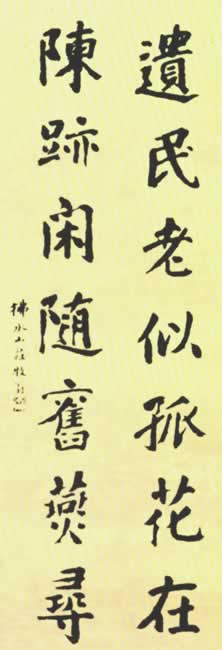 遺民老似孤花在
陳跡閑随舊燕尋
拂水山莊牧